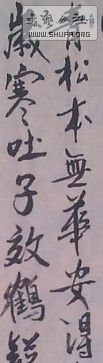 青松本無華安得
歲寒吐子效鶴
WWW.SHUFA.ORG